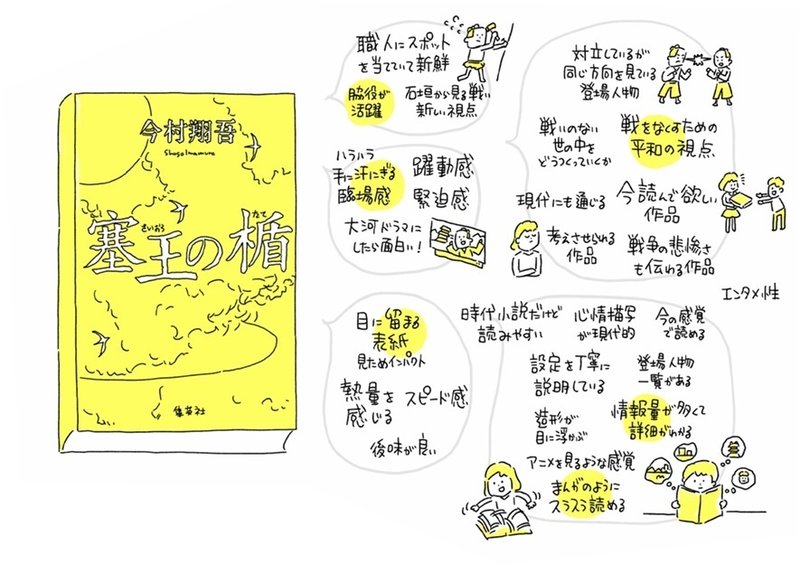 今村翔吾
ShogoImamura
さいおう
たて
塞王の楯
集英社
職人にスポット
を当てていて新鮮
脇役が
活躍
石垣から見る戦い
新しい視点
ハラハラ
手に汗にぎる
臨場感
躍動感
緊迫感
大河ドラマに
したら面白い!
目に留まる
表紙
見ためインパクト
熱量を
感じる
スピード感
後味が良い
対立しているが
同じ方向を見ている
登場人物
戦いのない
世の中を
どうつくっていくか
戦をなくすための
平和の視点
現代にも通じる
今読んで欲しい
作品
考えさせられる
作品
戦争の悲惨さ
も伝わる作品
エンタメ性
時代小説だけど
読みやすい
心情描写
が現代的
今の感覚
で読める
設定を丁寧に
説明している
登場人物
一覧がある
造形が
目に浮かぶ
情報量が多くて
詳細がわかる
アニメを見るような感覚
まんがのように
スラスラ読める